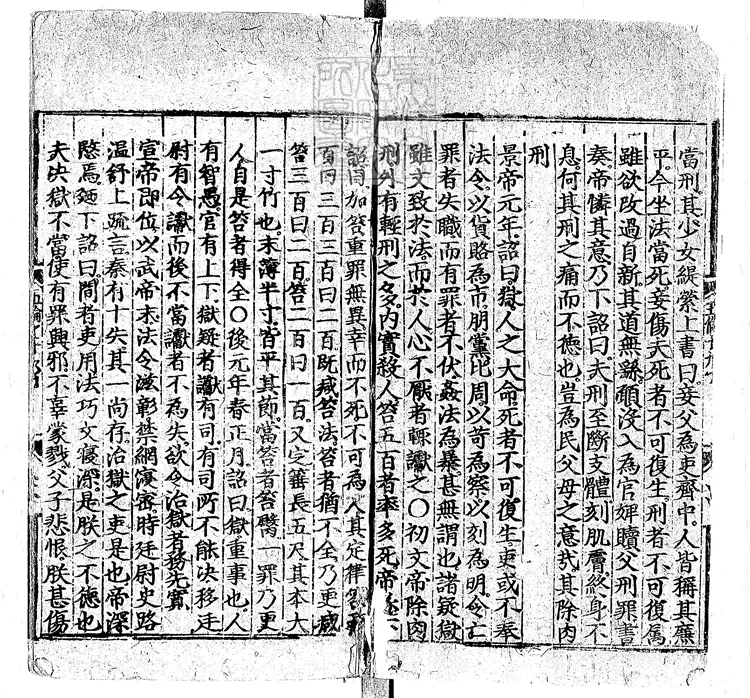 當刑其少女緹縈上書曰妾父為吏齊中人皆稱其廉
平今坐法當死妾傷夫死者不可復生刑者不可復屬
雖欲改過自新其道無繇願沒入為官婢贖父刑罪書
奏帝憐其意乃下詔曰夫刑至斷支體刻肌膚終身不
息何其刑之痛而不德也豈為民父母之意㢤其除肉
刑
景帝元年詔曰獄人之大命死者不可復生吏或不奉
法令以貨賂為市朋黨比周以苛為察以刻為明令亡
罪者失職而有罪者不伏姦法為暴甚無謂也諸疑獄
雖文致於法而於人心不厭者輙讞之○初文帝除肉
刑外有輕刑之名內實殺人笞五百者率多死帝
詔曰加笞重罪無異幸而不死不可為人其定律笞
百曰三百三百曰二百既减笞法笞者猶不全乃更减
笞三百曰二百笞二百曰一百又定箠長五尺其本大
一寸竹也末薄半寸皆平其節當笞者笞臀一罪乃更
人自是笞者得全○後元年春正月詔曰獄重事也人
有智愚官有上下獄疑者讞有司有司所不能决移廷
尉有令讞而後不當讞者不為失欲令治獄者務先寬
宣帝即位以武帝末法令滋彰禁網寖密時廷尉史路
温舒上䟽言秦有十失其一尚存治獄之吏是也帝深
愍焉廼下詔曰間者吏用法巧文寖深是朕之不德也
夫决獄不當使有罪興邪不辜蒙戮父子悲恨朕甚傷